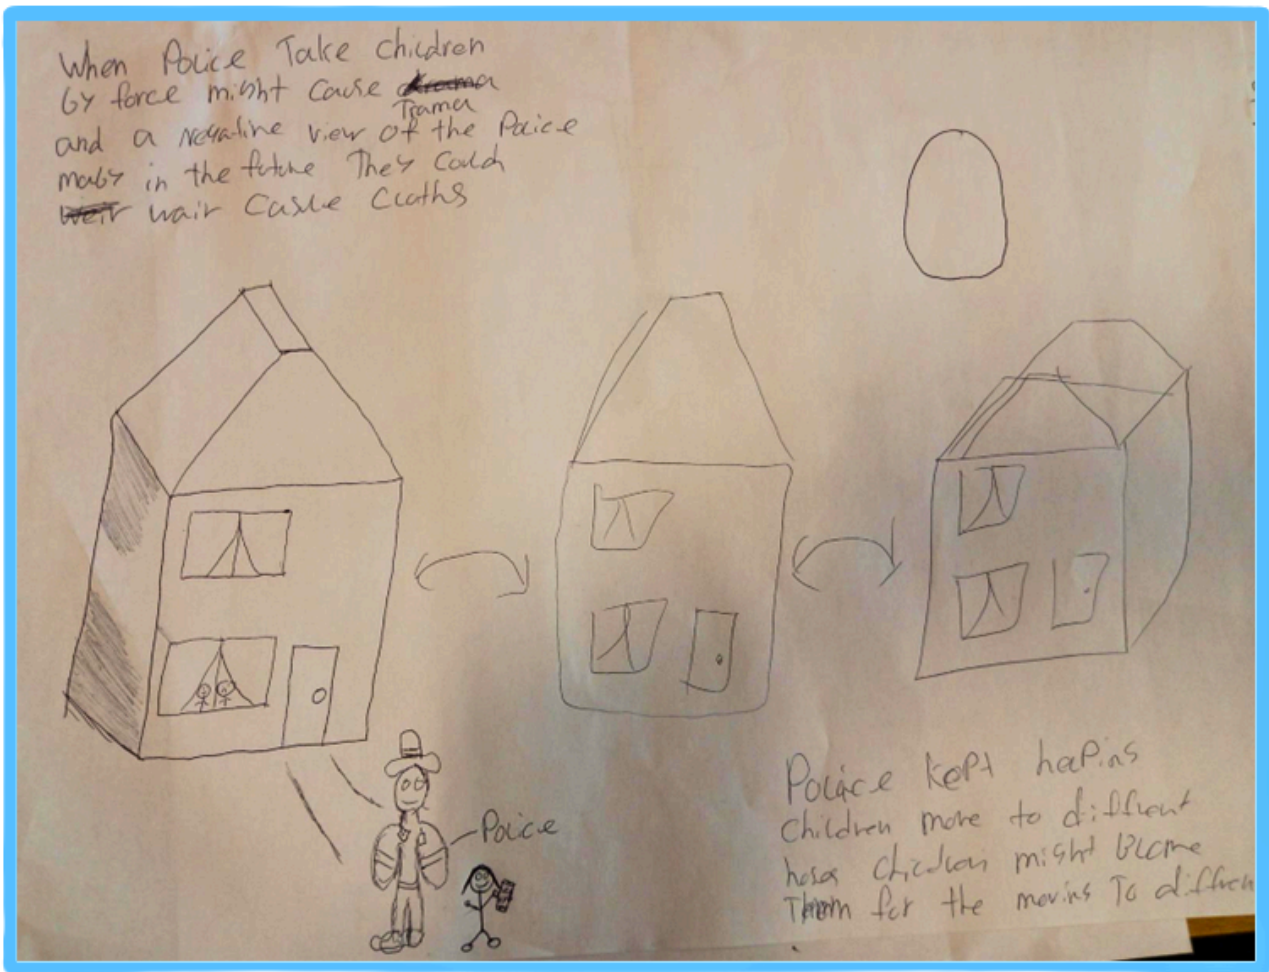 When Police Take children
by force might cause drama
Trama
and a negative view of the Police
maby in the future They Could
weir wair Casue Cloths
Police
Police kept helping
Children move to diffrent
hoses children might blame
Them for the moving To diffren